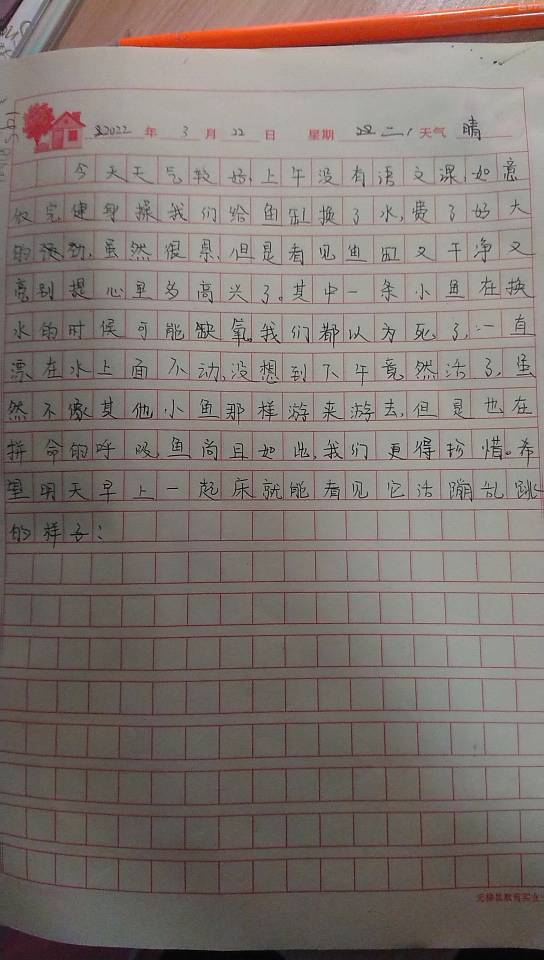 2022 年 3 月 22 日 星期 二 天气 晴
今天天气较好,上午没有语文课,如意
做完健身操我们给鱼缸换了水,费了好大
的劲,虽然很累,但是看见鱼缸又干净又
亮别提心里多高兴了。其中一条小鱼在换
水的时候可能缺氧,我们都以为死了,一直
漂在水上面不动,没想到下午竟然活了,虽
然不像其他小鱼那样游来游去,但是也在
拼命的呼吸,鱼尚且如此,我们更得珍惜。希
望明天早上一起床就能看见它活蹦乱跳
的样子!